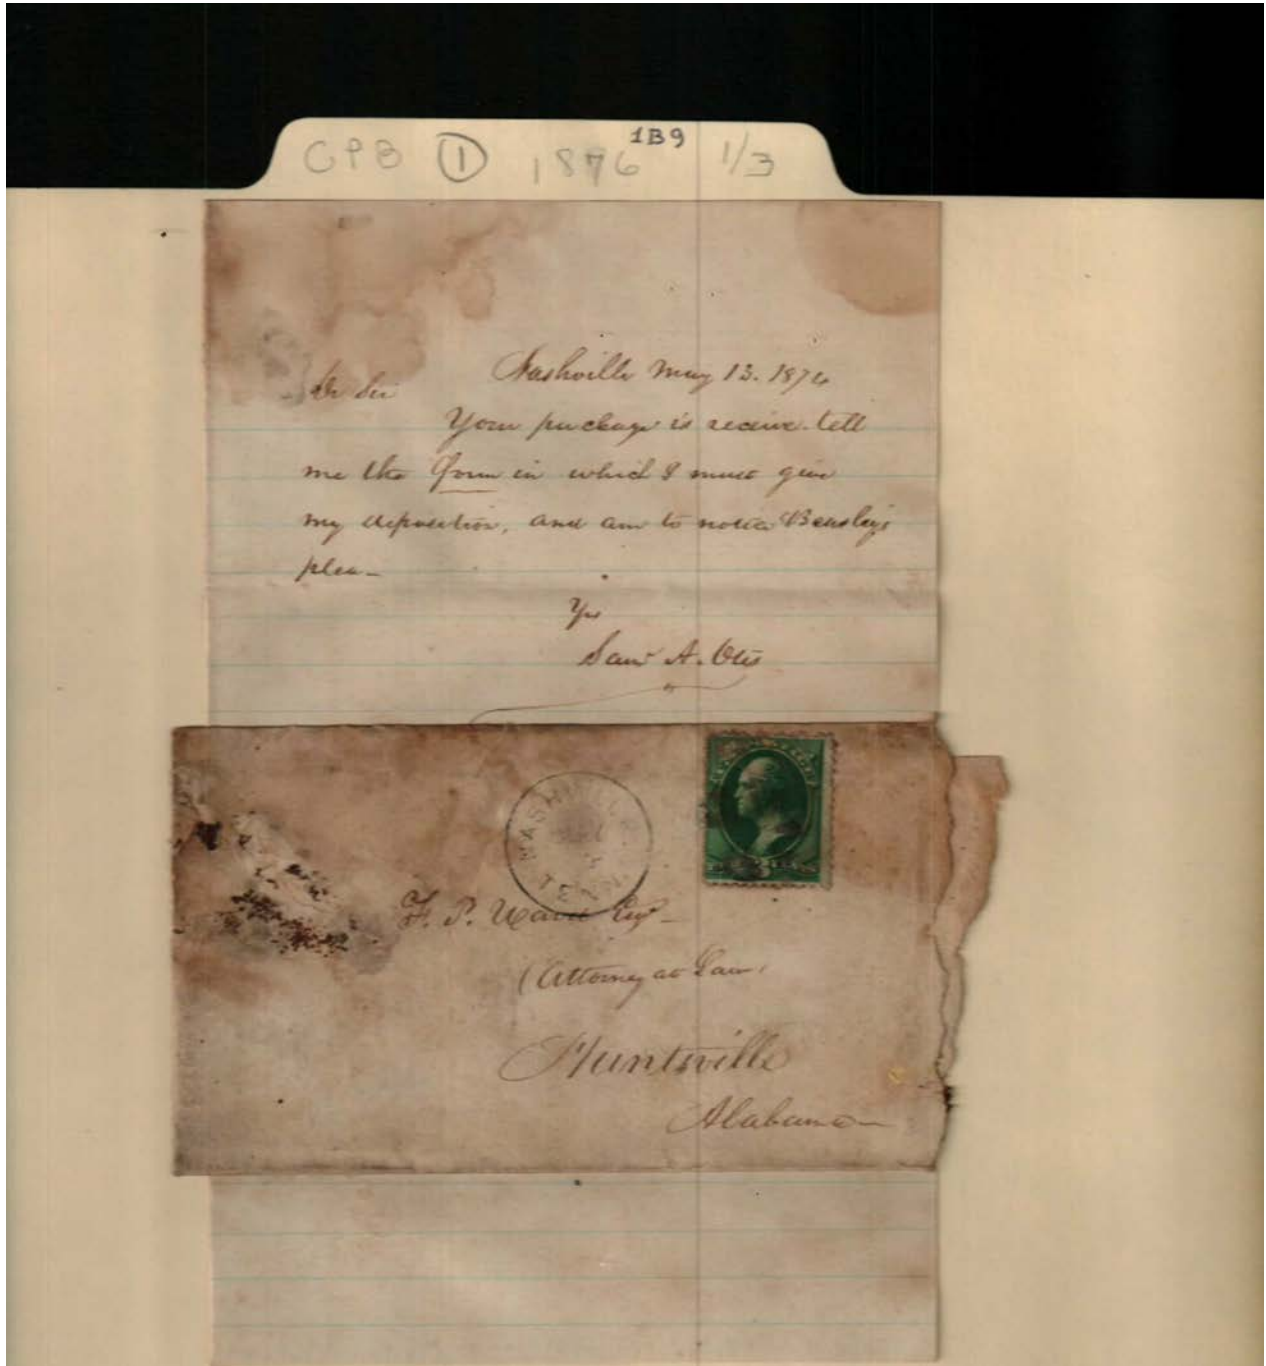 CPB 1 1876 1B9 1/3
Nashville May 13. 1874
Dr Sir
Your package is receive. tell
me the form in which I must give
my deposition, and am to notice Beasley's
plea_
Yrs
Sam A. Otis
NASHVILLE
TENN.
F. P. Ward Esqr
(Attorney at Law)
Huntsville
Alabama